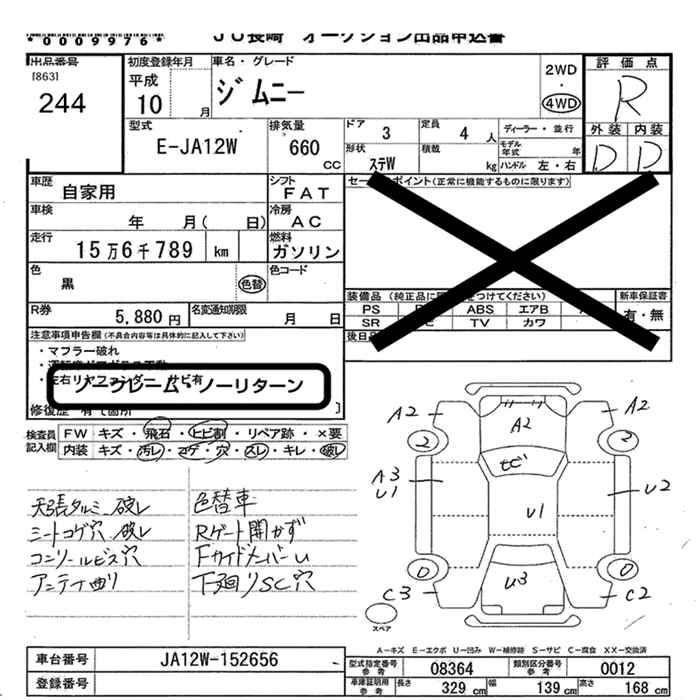 *0009976*
JU長崎 オークション出品申込書
出品番号
[863]
244
初度登録年月
平成
10 月
車名・グレード
ジムニー
2WD
・
4WD
評価点
R
外装 内装
D D
型式
E-JA12W
排気量
660 CC
ドア 3
定員 4 人
ディーラー・並行
モデル年式 年
形状 ステW
積載 kg
ハンドル 左・右
車歴 自家用
シフト FAT
車検 年 月( 日)
冷房 AC
走行 15万6千789 km
燃料 ガソリン
色 黒 色替
色コード
R券 5,880円
名変通知期限 月 日
セールスポイント(正常に機能するものに限ります)
装備品 (純正品に
をつけてください)
新車保証書
PS ABS エアB
有・無
SR TV カワ
後日
注意事項申告欄(不具合内容等は具体的に記入して下さい)
・マフラー破れ
ノークレーム・ノーリターン
修復歴
検査員
記入欄
FW キズ・飛石・ヒビ割・リペア跡・×要
内装 キズ・汚レ・コゲ・穴・スレ・キレ・破レ
天張タルミ 破レ
シートコゲ穴 破レ
コンソールビス穴
アンテナ曲リ
色替車
Rゲート開かず
FサイドメンバーU
下廻りSC穴
A2 A2 A2
2 2
ヒビ
A3
U1
U1
U2
U3
0 0
C3 C2
スペア
A-キズ E-エクボ U-凹み W-補修跡 S-サビ C-腐食 XX-交換済
車台番号 JA12W-152656
登録番号
型式指定番号
参考
08364
類別区分番号
参考
0012
車庫証明用
参考
長さ 329 cm
幅 139 cm
高さ 168 cm